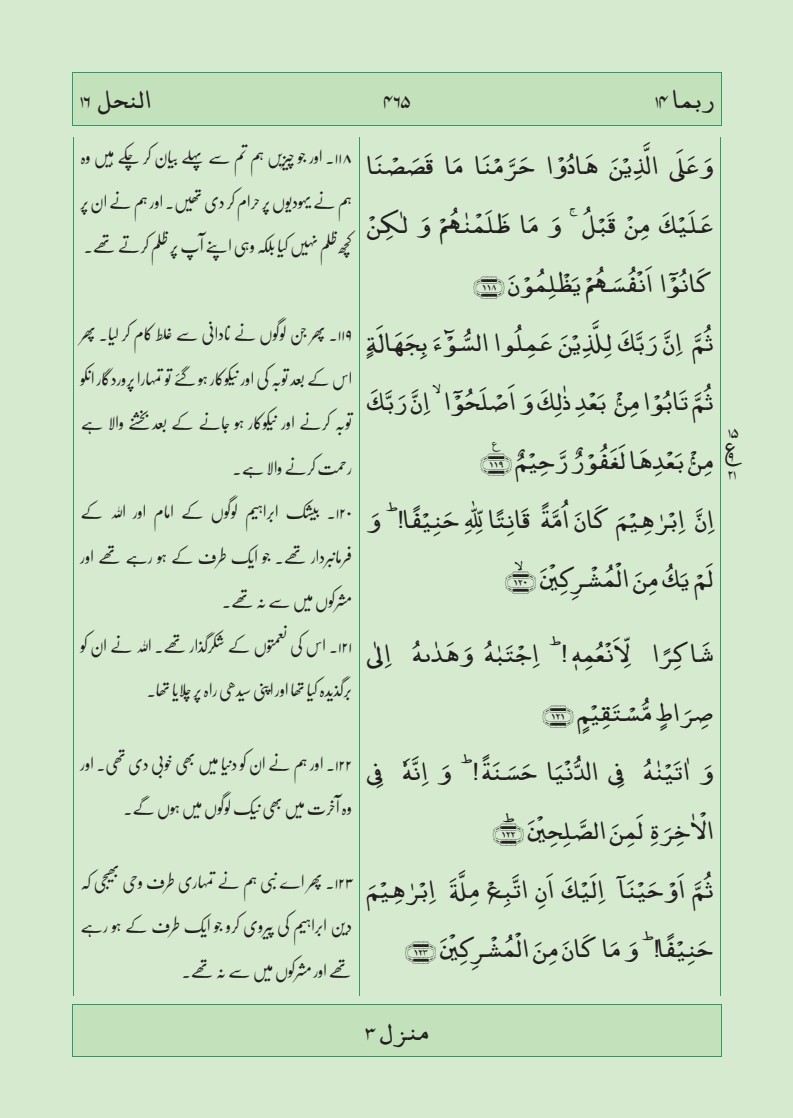 ربما ۱۴
۴۶۵
النحل ۱۶
وَعَلَى الَّذِيۡنَ هَادُوۡا حَرَّمۡنَا مَا قَصَصۡنَا
عَلَيۡكَ مِنۡ قَبۡلُ ۚ وَ مَا ظَلَمۡنٰهُمۡ وَ لٰكِنۡ
كَانُوۡۤا اَنۡفُسَهُمۡ يَظۡلِمُوۡنَ ﴿۱۱۸﴾
ثُمَّ اِنَّ رَبَّكَ لِلَّذِيۡنَ عَمِلُوا السُّوۡٓءَ بِجَهَالَةٍ
ثُمَّ تَابُوۡا مِنۡۢ بَعۡدِ ذٰلِكَ وَ اَصۡلَحُوۡۤا ۙ اِنَّ رَبَّكَ
مِنۡۢ بَعۡدِهَا لَغَفُوۡرٌ رَّحِيۡمٌ ﴿۱۱۹﴾ ع
اِنَّ اِبۡرٰهِيۡمَ كَانَ اُمَّةً قَانِتًا لِّلّٰهِ حَنِيۡفًا! ؕ وَ
لَمۡ يَكُ مِنَ الۡمُشۡرِكِيۡنَ ﴿۱۲۰﴾ ۙ
شَاكِرًا لِّاَنۡعُمِهٖ! ؕ اِجۡتَبٰهُ وَهَدٰٮهُ اِلٰى
صِرَاطٍ مُّسۡتَقِيۡمٍ ﴿۱۲۱﴾
وَ اٰتَيۡنٰهُ فِى الدُّنۡيَا حَسَنَةً! ؕ وَ اِنَّهٗ فِى
الۡاٰخِرَةِ لَمِنَ الصّٰلِحِيۡنَ ﴿۱۲۲﴾ ؕ
ثُمَّ اَوۡحَيۡنَاۤ اِلَيۡكَ اَنِ اتَّبِعۡ مِلَّةَ اِبۡرٰهِيۡمَ
حَنِيۡفًا! ؕ وَ مَا كَانَ مِنَ الۡمُشۡرِكِيۡنَ ﴿۱۲۳﴾
۱۵
ع
۲۱
۱۱۸۔ اور جو چیزیں ہم تم سے پہلے بیان کر چکے ہیں وہ
ہم نے یہودیوں پر حرام کر دی تھیں۔ اور ہم نے ان پر
کچھ ظلم نہیں کیا بلکہ وہی اپنے آپ پر ظلم کرتے تھے۔
۱۱۹۔ پھر جن لوگوں نے نادانی سے غلط کام کر لیا۔ پھر
اس کے بعد توبہ کی اور نیکوکار ہو گئے تو تمہارا پروردگار انکو
توبہ کرنے اور نیکوکار ہو جانے کے بعد بخشنے والا ہے
رحمت کرنے والا ہے۔
۱۲۰۔ بیشک ابراہیم لوگوں کے امام اور اللہ کے
فرمانبردار تھے۔ جو ایک طرف کے ہو رہے تھے اور
مشرکوں میں سے نہ تھے۔
۱۲۱۔ اس کی نعمتوں کے شکرگذار تھے۔ اللہ نے ان کو
برگذیدہ کیا تھا اور اپنی سیدھی راہ پر چلایا تھا۔
۱۲۲۔ اور ہم نے ان کو دنیا میں بھی خوبی دی تھی۔ اور
وہ آخرت میں بھی نیک لوگوں میں ہوں گے۔
۱۲۳۔ پھر اے نبی ہم نے تمہاری طرف وحی بھیجی کہ
دین ابراہیم کی پیروی کرو جو ایک طرف کے ہو رہے
تھے اور مشرکوں میں سے نہ تھے۔
منزل ۳